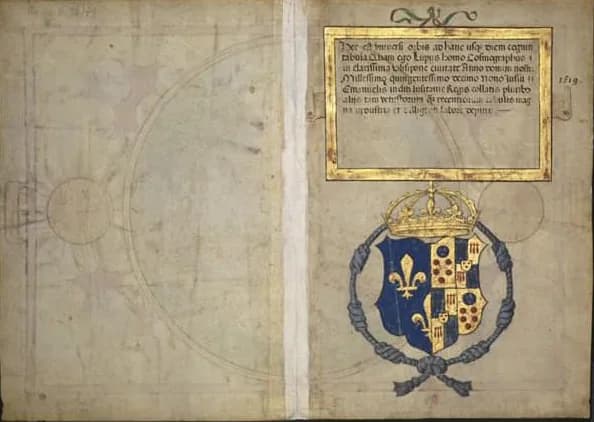 Hec est universi orbis ad hanc usqz diem cogniti
tabula quam ego Lupus homo Cosmographus i
in clarissima Ulisipone civitate Anno domini nostri
Millessimo quingentessimo decimo nono jussu
Emanuelis incliti lusitanie Regis collatis pluribs
aliis tam vetustiorum qz recentiorum tabulis mag
na industria et diligenti labore depinxi
1519.